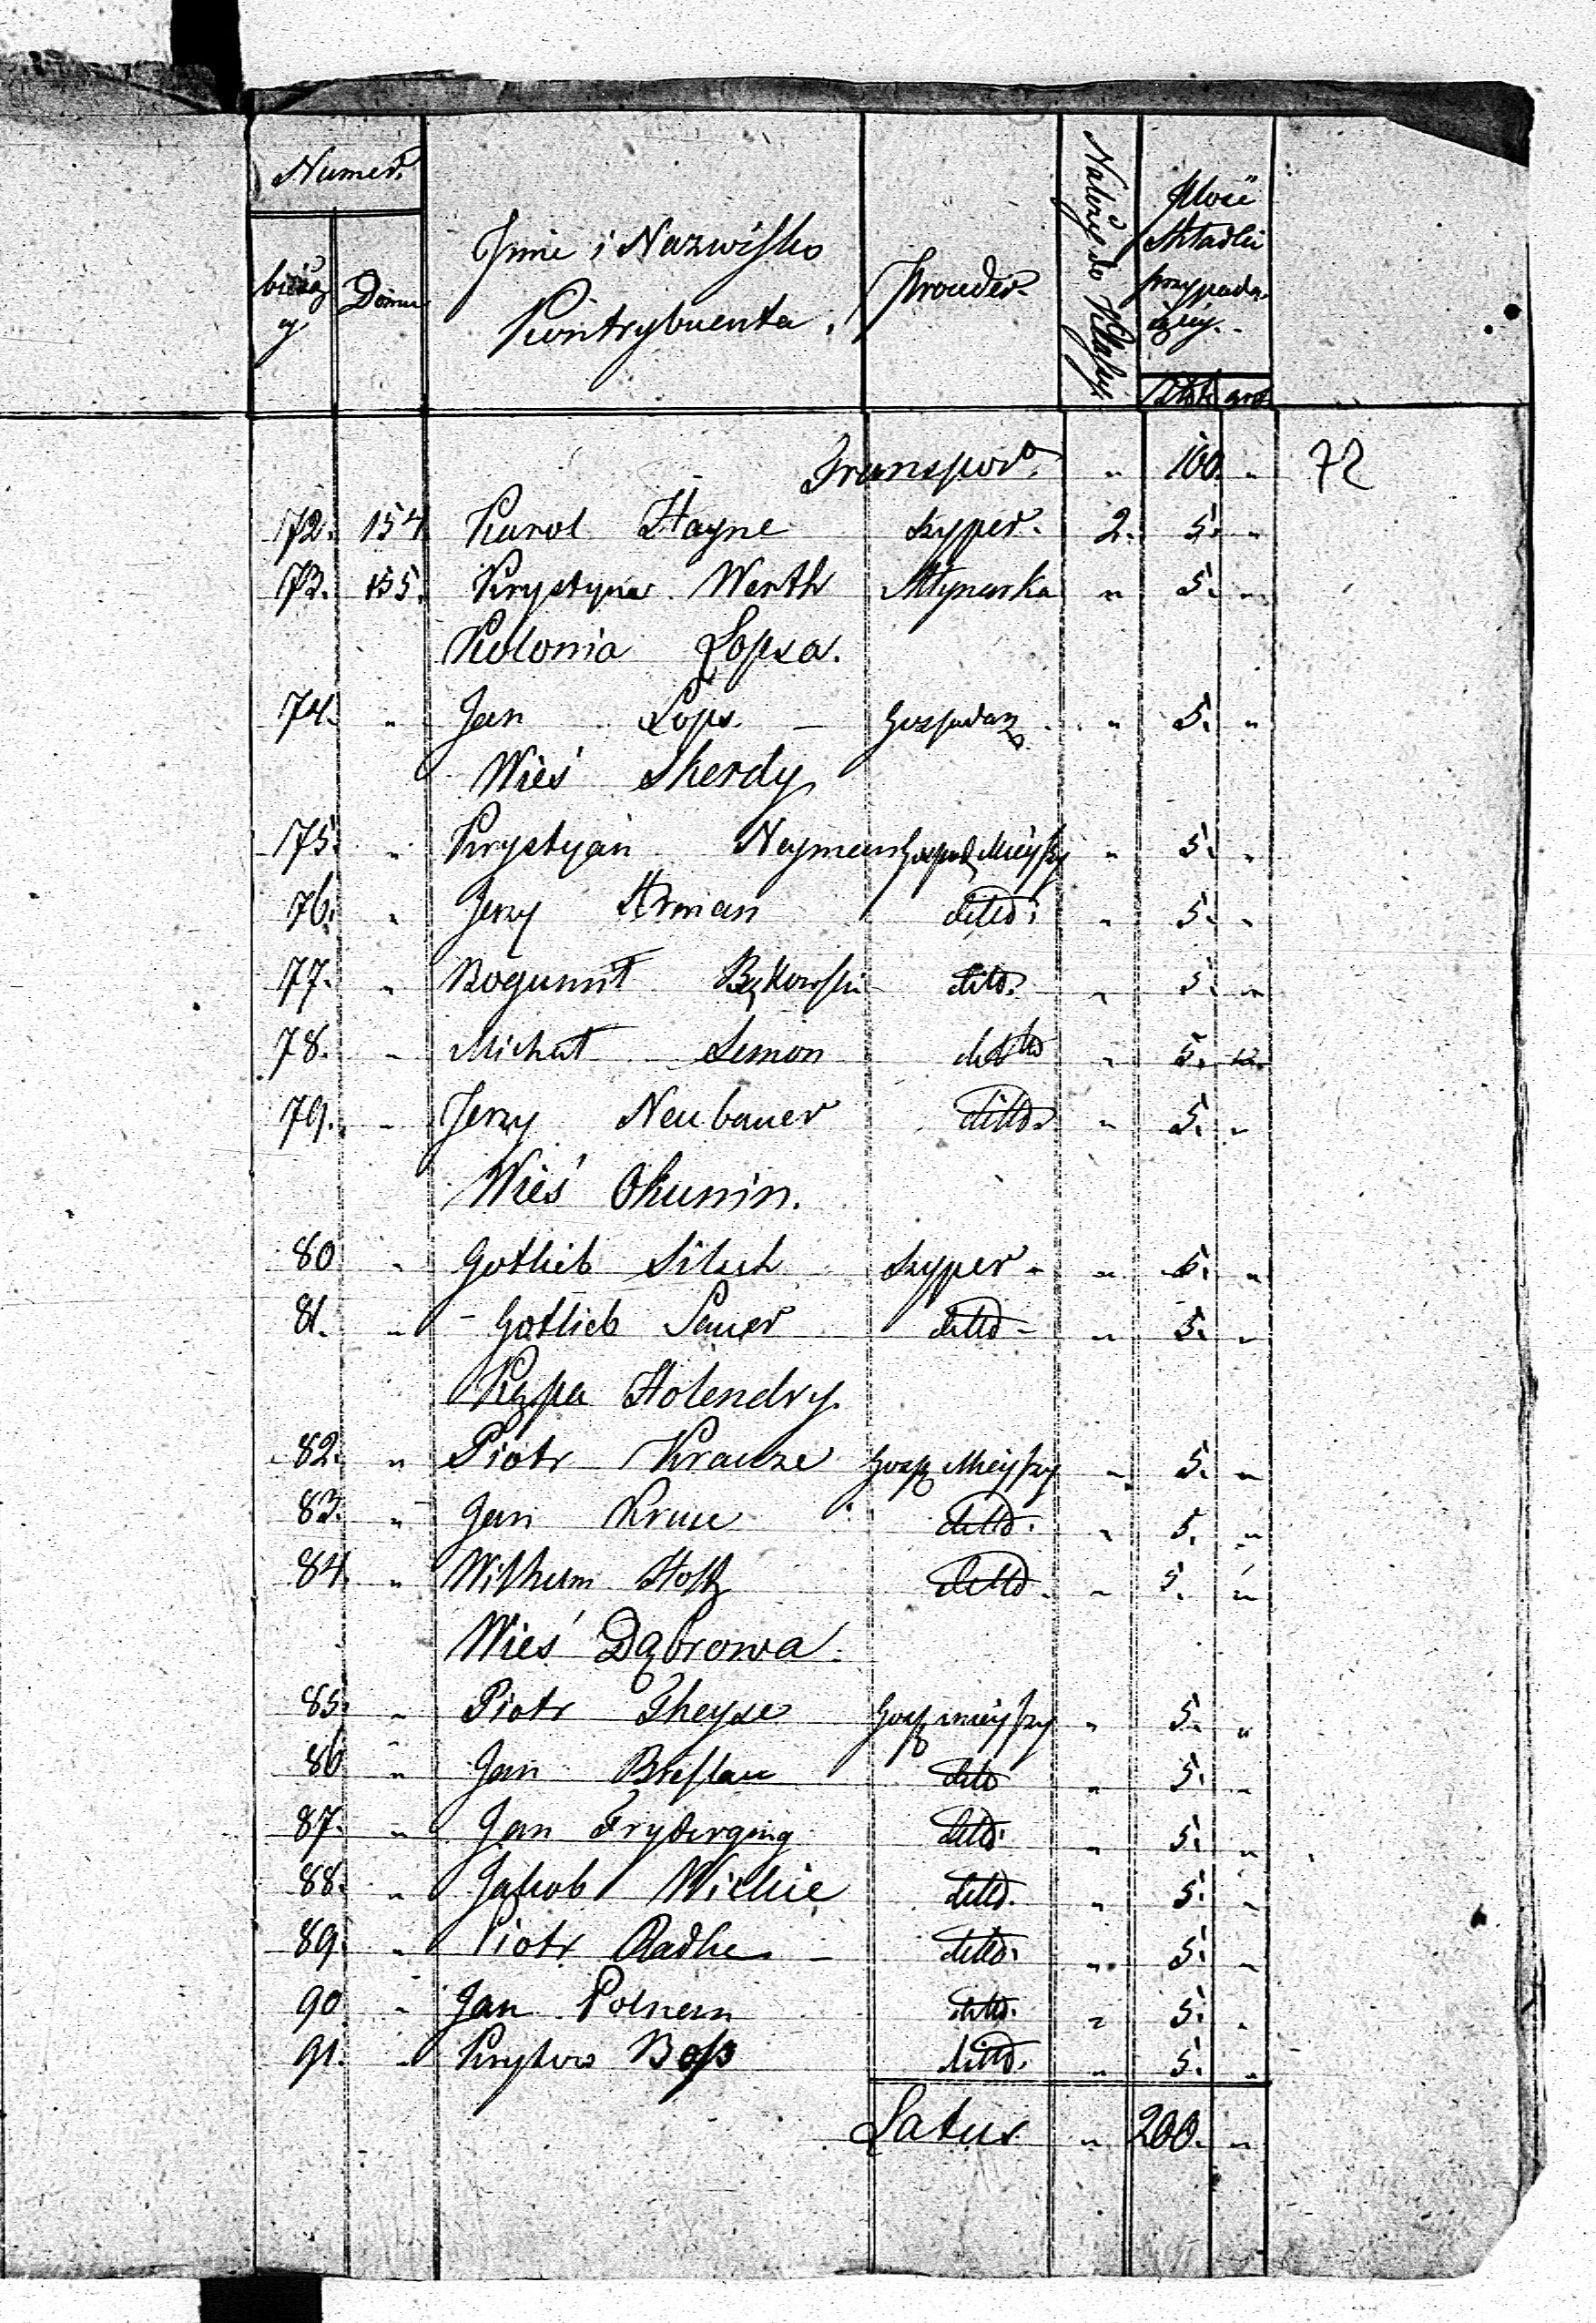 Numer.
bieżący Domu
Imie i Nazwisko
Kontrybuenta.
Proceder
Należy do Klassy
Ilość
Składki
przypada-
iącey.
Złotk gro
Transpor. " 100. " 72
72. 154. Karol Hayne Szyper. 2. 5. "
73. 155. Krystyna Werth Młynarka " 5. "
Kolonia Lopsa.
74. " Jan Lops. Gospodarz " 5. "
Wieś Skerdy
75. " Krystyan Neyman Gospod Mieyszy " 5. "
76. " Jerzy Arman ditto. " 5. "
77. " Bogumił Bykowski ditto. " 5. "
78. " Michał Simon ditto " 5. "
79. " Jerzy Neubauer ditto. " 5. "
Wieś Okunin.
80 " Gotlieb Szyper " 5. "
81. " Gotlieb Sauer ditto " 5. "
Kępa Holendry.
82. " Piotr Krauze Gosp Mieyszy " 5. "
83. " Jan ditto. " 5. "
84. " Wilhelm Holtz ditto. " 5. "
Wieś Dąbrowa.
85. " Piotr Theyse Gosp mieyszy " 5. "
86 " Jan Breslau ditto " 5. "
87. " Jan ditto. " 5. "
88. " Jakob Wilkie ditto. " 5. "
89. " Piotr Radke ditto. " 5. "
90 " Jan Polnau ditto. " 5. "
91. " Boss ditto. " 5. "
Latus " 200. "